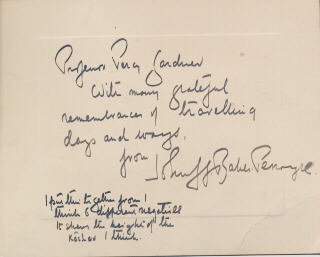 Professor Percy Gardner
With many grateful
remembrances of travelling
days and ways.
from John ff Baker Penoyre.
I put this together from I
think 6 different negatives
It shows the height of the
I think.